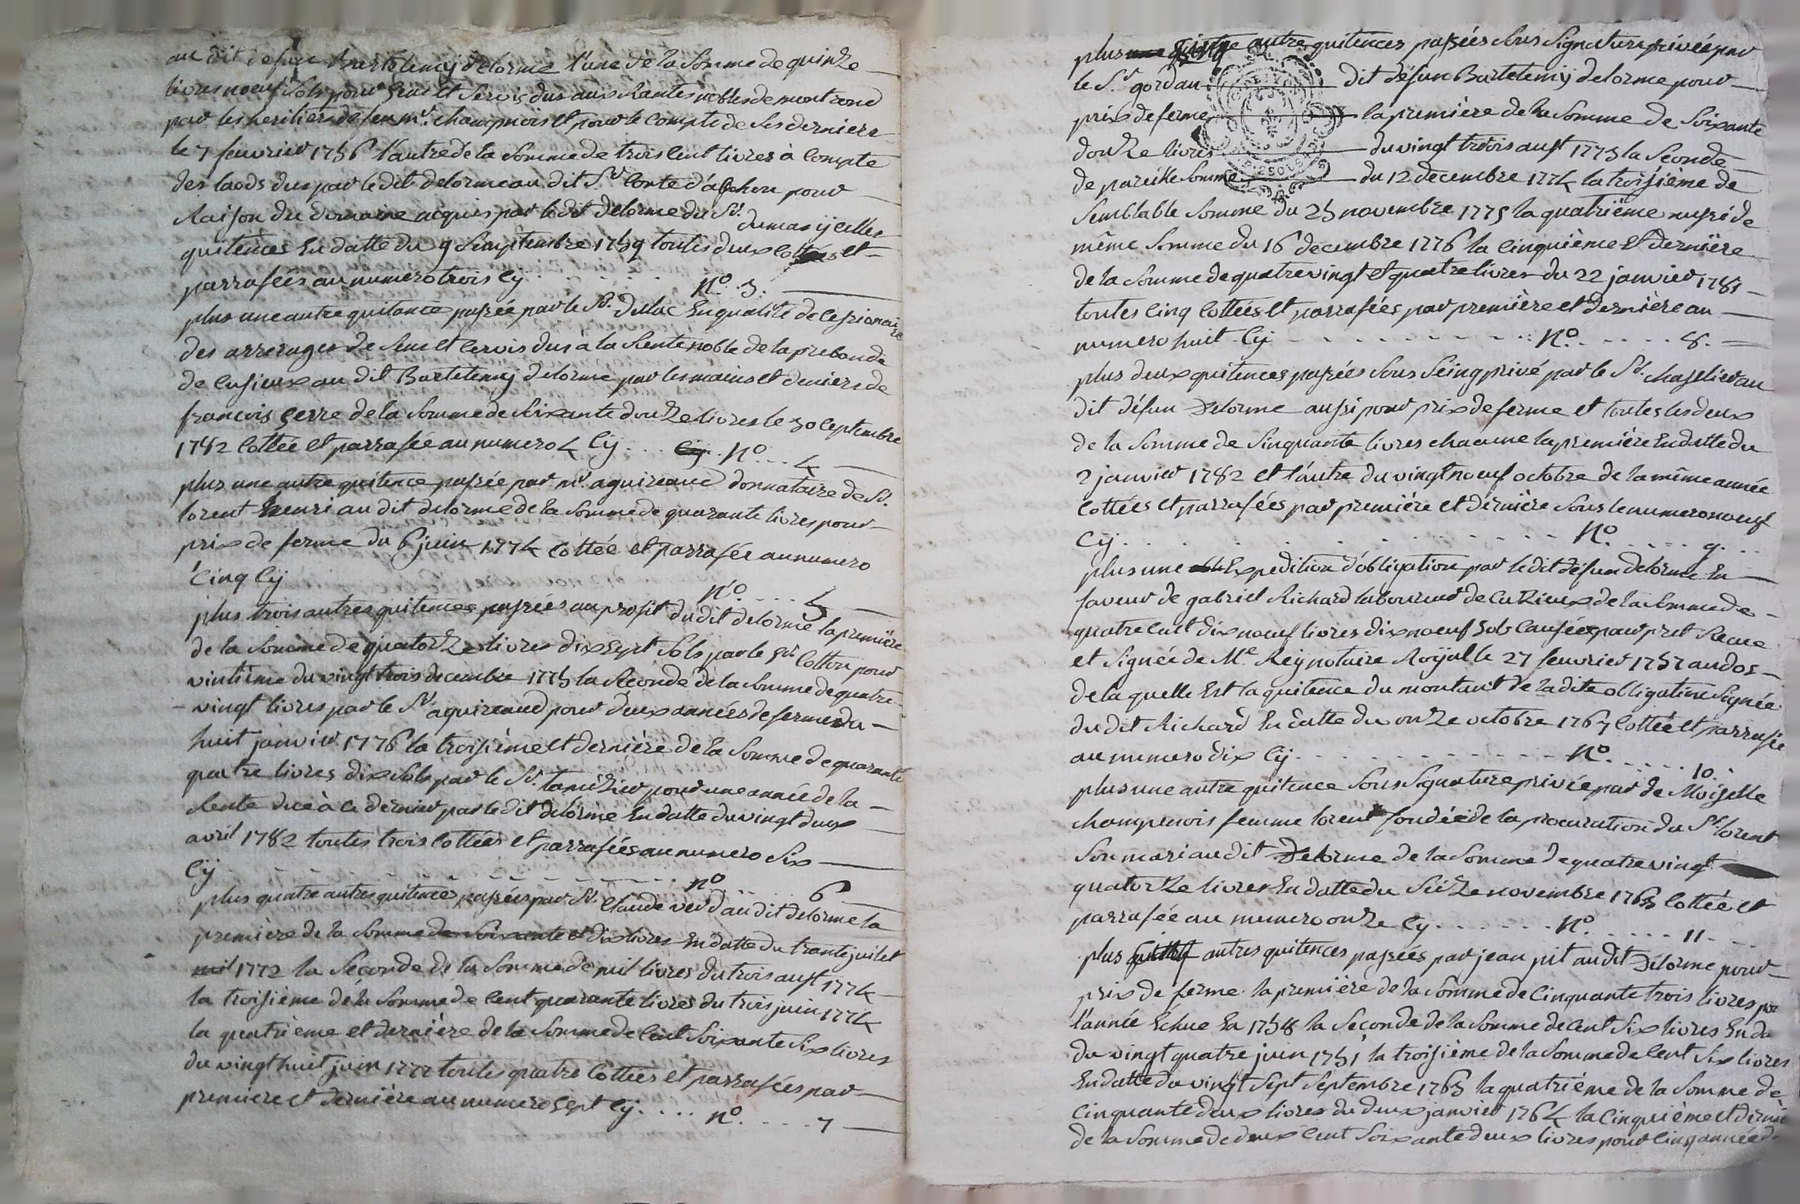 au dit defun Bartelemy delorme l'une de la somme de quinze
livres noeuf sols pour sens et servis dus aux Rantes nobles de montrond
par les heritiers de feu mr. champnois et pour le compte de ses derniers
le 7 fevrier 1756 l'autre de la somme de trois cent livres à compte
des laods dus par le dit delorme au dit Sr. Conte d'apchon pour
Raison du domaine acquis par le dit delorme du Sr. dumas y celles
quitences En datte du 9 Semptembre 1759 toutes deux cottées et
parrafées au numero trois Cy . . . . . . No. 3.
plus une autre quitance passée par le Sr. dulac En qualité de Cessionaire
des arrerages de Sens et Cervis dus à la Rente noble de la prebande
de Cusieux au dit Bartelemy delorme par les mains et deniers de
francois serre de la Somme de Soixante douze livres le 30 Ceptembre
1782 Cottée et parrafée au numero 4 Cy . . . . No. . . . 4
plus une autre quitence passée par mr. aguiraud donnataire de Sr.
lorent henri au dit delorme de la Somme de quarante livres pour
prix de ferme du 6 juin 1774 Cottée et parrafée au numero
Cinq Cy No. . . . . 5
plus trois autres quitences passées au profit du dit delorme la première
de la Somme de quatorze livres dix sept Sols par le Sr. Cotton pour
vintième du vingt trois decembre 1775 la Seconde de la Somme de quatre-
- vingt livres par le Sr. aguiraud pour deux années de ferme du
huit janvier 1776 la troisième et dernière de la Somme de quarante
quatre livres dix Sols par le Sr. pour une année de la
Rente due à ce dernier par le dit delorme En datte du vingt deux
avril 1782 toutes trois Cottées et parrafées au numero Six
Cy . . . . . . . . . . No. . . . . 6
plus quatre autres quitences passées par Sr. Claude au dit delorme la
première de la Somme de Soixante et dix livres En datte du trante juilet
1772 la Seconde de la Somme de mil livres du trois aust 1774
la troisième de la Somme de Cent quarante livres du trois juin 1774
la quatrieme et dernière de la Somme de Cent Soixante Six livres
du vingt huit juin 1777 toutes quatre Cottées et parrafées par
première et dernière au numero Sept Cy . . . . No. . . . . 7
plus autre quitences passées Sous Signature privée par
le Sr. gordan dit défun Bartelemy delorme pour
prix de ferme la première de la Somme de Soixante
douze livres du vingt trois aust 1773 la Seconde
de pareille Somme du 12 decembre 1774 la troisième de
Semblable Somme du 25 novembre 1775 la quatrième aussi de
même Somme du 16 decembre 1776 la Cinquième et dernière
de la Somme de quatre vingt et quatre livres du 22 janvier 1781
toutes Cinq Cottées et parrafées par première et dernière au
numero huit Cy . . . . . . . . . No. . . . . . 8.
plus deux quitences passées Sous Seing privé par le Sr. chasselier au
dit défun Delorme aussi pour prix de ferme et toutes les deux
de la Somme de Sinquante livres chacune la première En datte du
2 janvier 1782 et l'autre du vingt noeuf octobre de la même année
Cottées et parrafées par première et dernière Sous le numero noeuf
Cy . . . . . . . . . . No. . . . . 9. . .
plus une Expedition d'obligation par le dit défun delorme En
faveur de gabriel Richard laboureur de Cuzieux de la Somme de
quatre Cent dix noeuf livres dix noeuf Sols Causée pour pret Recue
et Signée de Me Rey notaire Royal le 27 fevrier 1757 au dos
de la quelle Est la quitence du montant de la dite obligation Signée
du dit Richard En datte du onze octobre 1767 Cottée et parrafée
au numero dix Cy . . . . . . . . No. . . . . . 10. .
plus une autre quitence Sous Signature privée par de Moiselle
champenois femme lorent fondée de la procuration du Sr. lorent
Son mari au dit Delorme de la Somme de quatre vingt
quatorze livres En datte du Seize novembre 1765 Cottée et
parrafée au numero onze Cy . . . . . . No. . . . . . 11. . .
plus autres quitences passées par jean pit au dit Delorme pour
prix de ferme la première de la Somme de Cinquante trois livres por
l'année Echue En 1758 la Seconde de la Somme de Cent Six livres En da
du vingt quatre juin 1751 la troisième de la Somme de Cent Six livres
En datte du vingt Sept Septembre 1763 la quatrième de la Somme de
Cinquante deux livres du deux janvier 1764 la Cinquième et derni
de la Somme de deux Cent Soixante deux livres pour Cinq années d